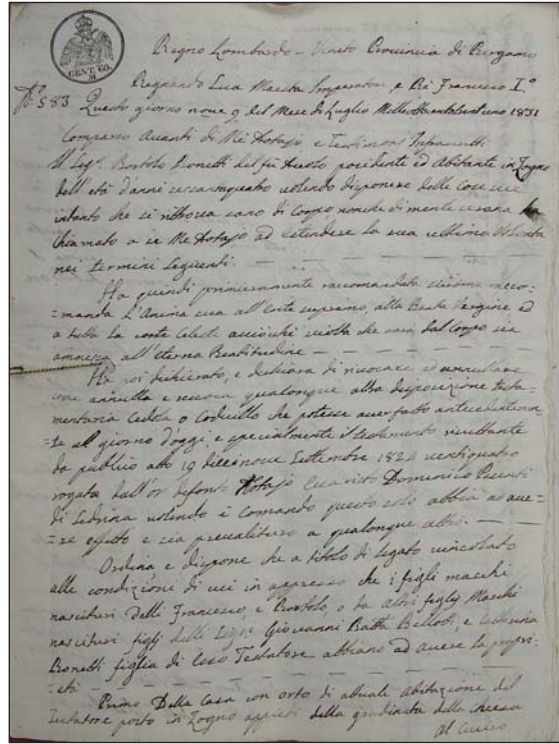 CENT. 60.
Regno Lombardo - Veneto Provincia di Bergamo
Regnando Sua Maestà Imperatore, e Rè Francesco I.º
N.º 583 Questo giorno nove 9 del Mese di Luglio Milleottocentotrentuno 1831
Comparso Avanti di Me Notajo e Testimonj Infrascritti
Il Sig.r Bortolo Bonetti del fu possidente ed Abitante in Zogno
dell'età d'anni sessantaquattro volendo disporre delle Cose sue
intanto che si ritrova sano di Corpo nonche di mente
Chiamato a se Me Notajo ad estendere la sua ultima Volontà
nei termini seguenti. — — —
Ha quindi primieramente raccomandata siccome racco=
=manda L'Anima sua all'Ente supremo, alla Beata Vergine, ed
a tutta la Corte Celeste acciocchè sciolta che sarà dal Corpo sia
ammessa all'eterna Beatitudine — — —
Ha poi dichiarato, e dichiara di rivocare ed annullare
annulla e revoca qualongue altra disposizione testa=
mentaria Cedola o Codicillo che potesse aver fatto antecedentemen=
=te al giorno d'oggi, e specialmente il testamento risultante
da publico atto 19 diecinove Settembre 1824 ventiquattro
rogato dall'or defonto Notajo Domenico Pesenti
di Sedrina volendo e Comando questo solo abbia ad ave=
=re effetto e sia prevalituro a qualongue altro. — —
Ordina e dispone che a titolo di Legato vincolato
alle condizioni di cui in appresso che i figli macchi
nascituri delli Francesco, e Bortolo, o da altri figlj Macchi
nascituri figlj delli Sigri Giovanni Batta Bellotti, e Catterina
Bonetti figlia di Esso Testatore abbiano ad avere la propri=
=età — — —
Primo Della Casa con orto di attuale Abitazione del
Testatore posto in Zogno appiedi della gradinata della Chiesa
al